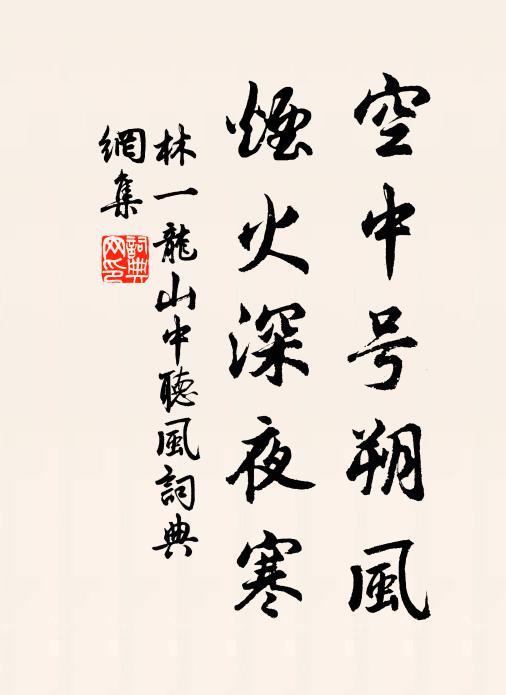 空中号朔風
煙火深夜寒
林一龍山中聴風詞典
網集
詞典
网印